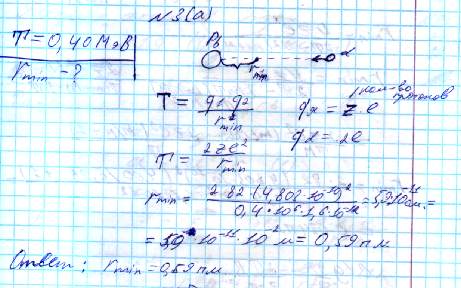 №3(а)
T = 0,40 МэВ
r min - ?
Pb α
r min
T = q1 q2 / r min qα = z·e кол-во протонов
q2 = 2e
T = 2ze² / r min
r min = 2·82·(4,802·10⁻¹⁰)² / 0,4·10⁶·1,6·10⁻¹² = 5,9·10⁻¹¹ см. =
= 59·10⁻¹¹·10⁻² м = 0,59 пм
Ответ: r min = 0,59 пм